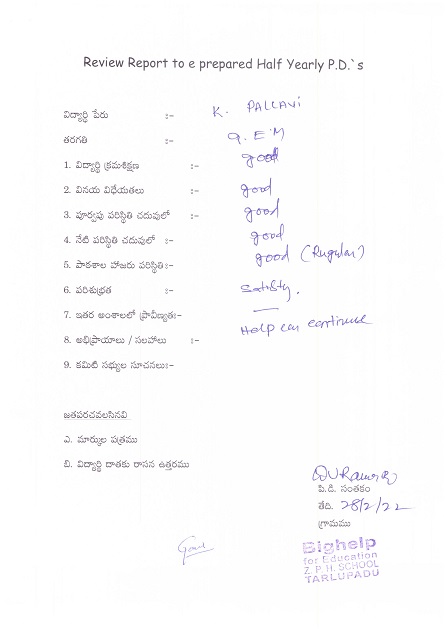 Review Report to e prepared Half Yearly P.D.`s
విద్యార్థి పేరు :- K. PALLAVI
తరగతి :- 9. E M
1. విద్యార్థి క్రమశిక్షణ :- good
2. వినయ విధేయతలు :- good
3. పూర్వపు పరిస్థితి చదువులో :- good
4. నేటి పరిస్థితి చదువులో :- good
5. పాఠశాల హాజరు పరిస్థితి:- good (Rugular)
6. పరిశుభ్రత :- Satisfy.
7. ఇతర అంశాలలో ప్రావీణ్యత:- —
8. అభిప్రాయాలు / సలహాలు :- Help can continue
9. కమిటి సభ్యుల సూచనలు:-
జతపరచవలసినవి
ఎ. మార్కుల పత్రము
బి. విద్యార్థి దాతకు రాసిన ఉత్తరము
పి.డి. సంతకం
తేది. 28/2/22
గ్రామము
Bighelp
for Education
Z. P. H. SCHOOL
TARLUPADU